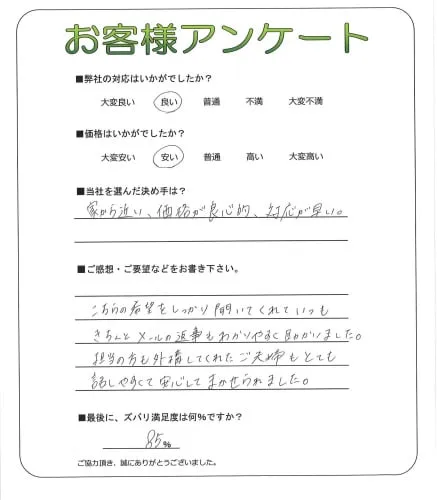 お客様アンケート
■弊社の対応はいかがでしたか？
大変良い 良い 普通 不満 大変不満
■価格はいかがでしたか？
大変安い 安い 普通 高い 大変高い
■当社を選んだ決め手は？
家から近い、価格が良心的、対応が早い。
■ご感想・ご要望などをお書き下さい。
こちらの希望をしっかり聞いてくれていつも
きちんとメールの返事もわかりやすく助かりました。
担当の方も外構してくれたご夫婦もとても
話しやすくて安心してまかせられました。
■最後に、ズバリ満足度は何%ですか？
85%
ご協力頂き、誠にありがとうございました。